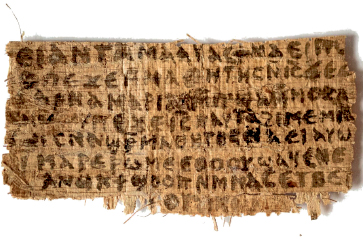 ⲉⲓ ⲁⲛ ⲧⲁⲙⲁⲁⲩ ⲁⲥϯ ⲛⲁⲉⲓ ⲡⲱ
ⲡⲉϫⲉ ⲙⲙⲁⲑⲏⲧⲏⲥ ⲛⲓⲥ ϫⲉ
ⲁⲣⲛⲁ ⲙⲁⲣⲓⲁⲙ ⲙⲡϣⲁ ⲙⲙⲟⲥ
ⲡⲉϫⲉ ⲓⲥ ⲛⲁⲩ ⲧⲁϩⲓⲙⲉ ⲙⲛ
ⲥⲛⲁϣⲣⲙⲁⲑⲏⲧⲏⲥ ⲛⲁⲉⲓ ⲁⲩⲱ
ⲓ ⲙⲁⲣⲉⲣⲱⲙⲉ ⲉⲑⲟⲟⲩ ϣⲁϥⲉ ⲛⲉ
ⲁⲛⲟⲕ ϯϣⲟⲟⲡ ⲛⲙⲙⲁⲥ ⲉⲧⲃⲉ